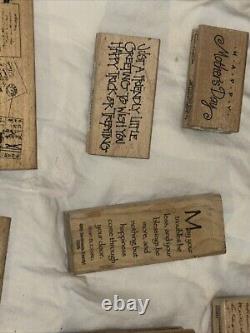 JUST A FRIENDLY LITTLE
GREETING TO WISH YOU
HAPPY TRICK OR TREATING
HAPPY
Mother's Day
May your
troubles be
less, and your
blessings be
more, and
nothing but
happiness
come through
your door.